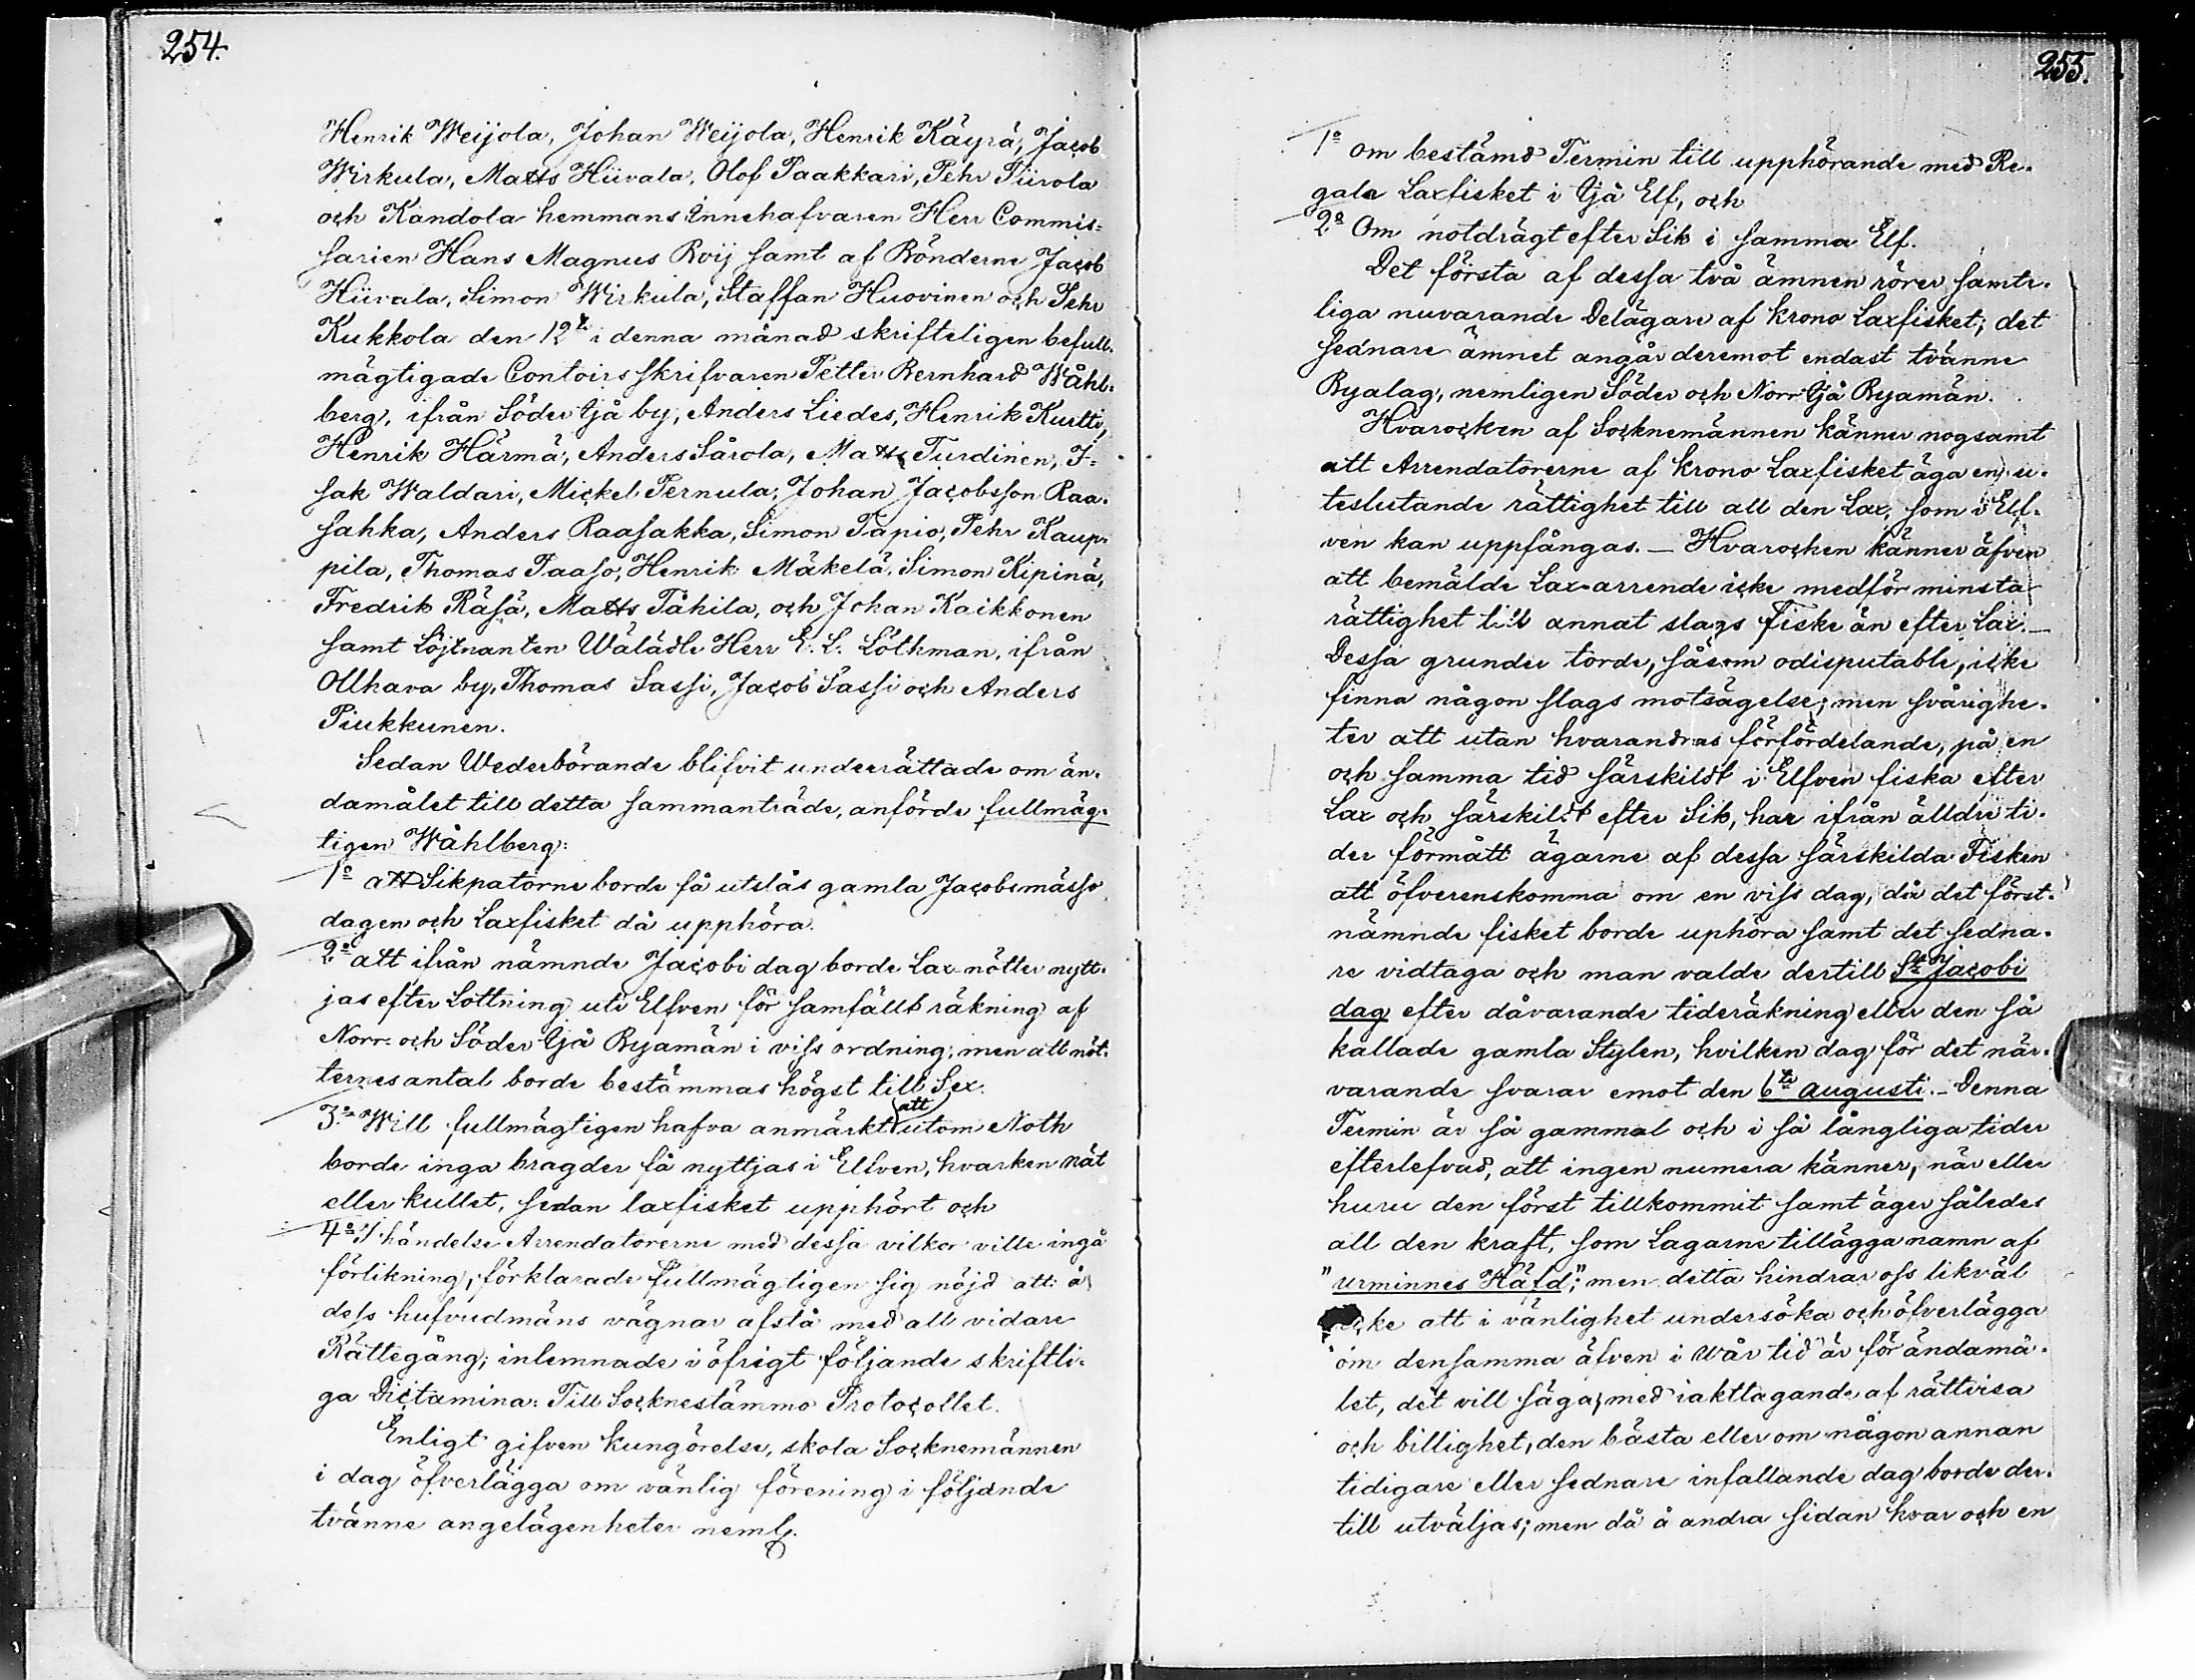 254.
Henrik Weijola, Johan Weijola, Henrik Käyrä, Jacob
Wirkula, Matts Hiivala, Olof Paakkari, Pehr Piirola
och Kandola hemmans Innehafvaren Herr Commis-
sarien Hans Magnus Roij samt af Bönderne Jacob
Hiivala, Simon Wirkula, Staffan Huovinen och Pehr
Kukkola den 12te i denna månad skrifteligen befull-
mägtigade Contoirs skrifvaren Petter Bernhard Wåhl-
berg, ifrån Söder Ijå by, Anders Liedes, Henrik Kurtti,
Henrik Härmä, Anders Särola, Matts Turdinen, I-
sak Waldari, Mickel Pernula, Johan Jacobsson Raa-
sahka, Anders Raasakka, Simon Tapio, Pehr Kaup-
pila, Thomas Paaso, Henrik Mäkelä, Simon Kipinä,
Fredrik Räsä, Matts Tähilä, och Johan Kaikkonen
samt Löjtnanten Wälädle Herr E. L. Löthman, ifrån
Olhava by, Thomas Sassi, Jacob Sassi och Anders
Piukkunen.
Sedan Wederbörande blifvit underrättade om än-
damålet till detta sammanträde, anförde fullmäg-
tigen Wåhlberg:
1o att Sikpatorne borde få utslås gamla Jacobsmässo
dagen och Laxfisket då upphöra.
2o att ifrån nämnde Jacobi dag borde Lax-nötter nytt-
jas efter Lottning uti Elfven för samfällt räkning af
Norr- och Söder Ijå Byamän i viss ordning, men att nöt-
ternes antal borde bestämmas högst till Sex.
3o Will fullmägtigen hafva anmärkt att utom Noth
borde inga bragder få nyttjas i Elfven, hvarken nät
eller kullet, sedan laxfisket upphört och
4o I händelse Arrendatorerne med dessa vilkor ville ingå
förlikning, förklarade fullmägtigen sig nöjd att å
dess hufvudmäns vägnar afstå med all vidare
Rättegång; inlemnade i öfrigt följande skriftli-
ga Dictamina: Till Socknestämmo Protocollet.
Enligt gifven kungörelse, skola Socknemännen
i dag öfverlägga om vänlig förening i följande
tvänne angelägenheter neml.
255.
1o om bestämd Termin till upphörande med Re-
gala Laxfisket i Ijå Elf, och
2o Om notdrägt efter Sik i samma Elf.
Det första af dessa två ämnen rörer samte-
liga nuvarande Delägare af Krono Laxfisket; det
sednare ämnet angår deremot endast tvänne
Byalag, nemligen Söder och Norr Ijå Byamän.
Hvarocken af Socknemännen känner nogsamt
att Arrendatorerne af Krono Laxfisket äga en u-
teslutande rättighet till all den Lax, som i Elf-
ven kan uppfångas. – Hvarochen känner äfven
att bemälde Lax-arrende icke medför minsta
rättighet till annat slags Fiske än efter Lax. –
Dessa grunder torde, såsom odisputable, icke
finna någon slags motsägelse; men svårighe-
ter att utan hvarandras förfördelande, på en
och samma tid särskildt i Elfven fiska efter
Lax och särskildt efter Sik, har ifrån älldre ti-
der förmått ägarne af dessa särskilda Fisken
att öfverenskomma om en viss dag, då det först-
nämnde fisket borde uphöra samt det sedna-
re vidtaga och man valde dertill St Jacobi
dag efter dåvarande tideräkning eller den så
kallade gamla Stylen, hvilken dag för det när-
varande svarar emot den 6te augusti. – Denna
Termin är så gammal och i så långliga tider
efterlefvad, att ingen numera känner, när eller
huru den först tillkommit samt äger således
all den kraft, som Lagarne tillägga namn af
"urminnes Häfd"; men detta hindrar oss likväl
icke att i vänlighet undersöka och öfverlägga
om densamma äfven i wår tid är för ändamå-
let, det vill säga, med iakttagande af rättvisa
och billighet, den bästa eller om någon annan
tidigare eller sednare infallande dag borde der-
till utväljas; men då å andra sidan hvar och en